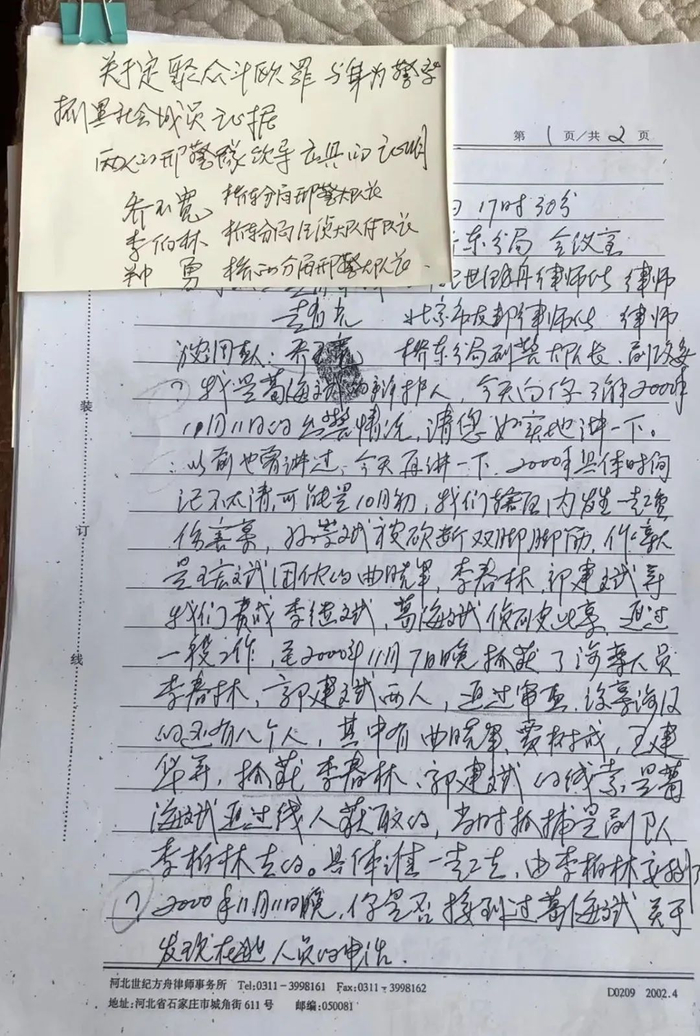 关于定聚众斗殴罪与身为警察
抓黑社会成员证据
两人的刑警队领导出具的证明
乔玉宽 桥东分局刑警大队长
李伯林 桥东分局任侦大队付队长
勇 桥西分局刑警大队长
第1页/共2页
17时30分
东分局 会议室
律师
北京市 律师 律师
桥东分局刑警大队长、副政委
? 我是葛海斌的辩护人，今天向你了解2000年
11月11日的出警情况，请您如实地讲一下。
：以前也曾讲过，今天再讲一下，2000年具体时间
记不太清，可能是10月初，我们辖区内发生一起重
伤害案，孙 斌被砍断双脚脚筋，作案
是王宏斌团伙的曲晓军，李春林，郭建斌等
我们责成李继斌，葛海斌侦破此案，通过
一段工作，至2000年11月7日晚抓获了涉案人员
李春林、郭建斌两人，通过审查，该案涉及
的还有八个人，其中有曲晓军、贾树成，王建
华等，抓获李春林、郭建斌的线索是葛
海斌通过线人获取的，当时抓捕是副队
李柏林去的。具体谁一起去，由李柏林安排
? 2000年11月11日晚，你是否接到过葛海斌关于
发现在逃人员的电话。
装
订
线
河北世纪方舟律师事务所 Tel:0311-3998161 Fax:0311-3998162
地址:河北省石家庄市城角街611号 邮编:050081
D0209 2002.4